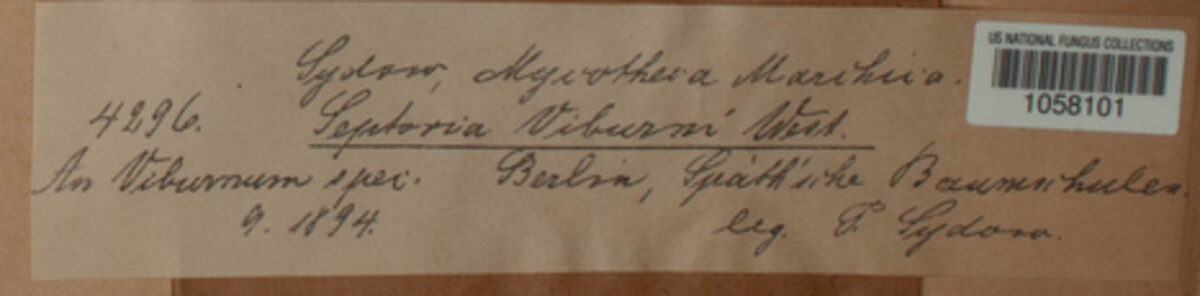 Sydow, Mycotheca Marchica.
4296. Septoria Viburni West.
An Viburnum spec. Berlin, Späth'sche Baumschulen.
9. 1894. leg. P. Sydow.
US NATIONAL FUNGUS COLLECTIONS
1058101